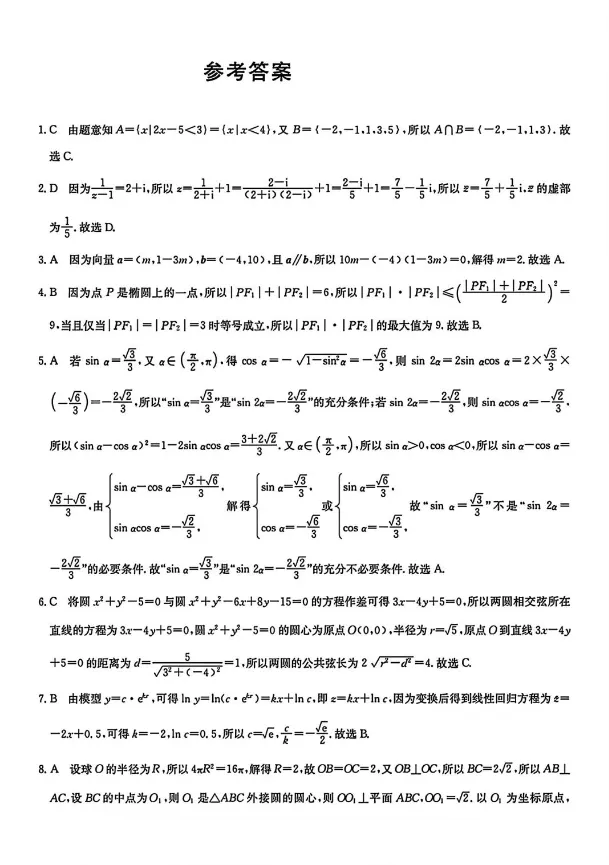 参考答案
1. C 由题意知 A={x|2x-5<3}={x|x<4},又 B={-2,-1,1,3,5},所以 A∩B={-2,-1,1,3}. 故
选 C.
2. D 因为 1/(z-1)=2+i,所以 z=1/(2+i)+1=(2-i)/((2+i)(2-i))+1=(2-i)/5+1=7/5-1/5 i,所以 z̄=7/5+1/5 i, z̄ 的虚部
为 1/5. 故选 D.
3. A 因为向量 a=(m,1-3m),b=(-4,10),且 a∥b,所以 10m-(-4)(1-3m)=0,解得 m=2. 故选 A.
4. B 因为点 P 是椭圆上的一点,所以|PF₁|+|PF₂|=6,所以|PF₁|·|PF₂|≤((|PF₁|+|PF₂|)/2)²=
9,当且仅当|PF₁|=|PF₂|=3 时等号成立,所以|PF₁|·|PF₂|的最大值为 9. 故选 B.
5. A 若 sin α=√3/3,又 α∈(π/2,π),得 cos α=-√(1-sin²α)=-√6/3,则 sin 2α=2sin αcos α=2×√3/3×
(-√6/3)=-2√2/3,所以“sin α=√3/3”是“sin 2α=-2√2/3”的充分条件;若 sin 2α=-2√2/3,则 sin αcos α=-√2/3,
所以(sin α-cos α)²=1-2sin αcos α=(3+2√2)/3. 又 α∈(π/2,π),所以 sin α>0,cos α<0,所以 sin α-cos α=
(√3+√6)/3,由{sin α-cos α=(√3+√6)/3, sin αcos α=-√2/3, 解得{sin α=√3/3, cos α=-√6/3 或{sin α=√6/3, cos α=-√3/3, 故“sin α=√3/3”不是“sin 2α=
-2√2/3”的必要条件. 故“sin α=√3/3”是“sin 2α=-2√2/3”的充分不必要条件. 故选 A.
6. C 将圆 x²+y²-5=0 与圆 x²+y²-6x+8y-15=0 的方程作差可得 3x-4y+5=0,所以两圆相交弦所在
直线的方程为 3x-4y+5=0,圆 x²+y²-5=0 的圆心为原点 O(0,0),半径为 r=√5,原点 O 到直线 3x-4y
+5=0 的距离为 d=5/√(3²+(-4)²)=1,所以两圆的公共弦长为 2√(r²-d²)=4. 故选 C.
7. B 由模型 y=c·e^(kx),可得 ln y=ln(c·e^(kx))=kx+ln c,即 z=kx+ln c,因为变换后得到线性回归方程为 z=
-2x+0.5,可得 k=-2,ln c=0.5,所以 c=√e,c/k=-√e/2. 故选 B.
8. A 设球 O 的半径为 R,所以 4πR²=16π,解得 R=2,故 OB=OC=2,又 OB⊥OC,所以 BC=2√2,所以 AB⊥
AC,设 BC 的中点为 O₁,则 O₁ 是△ABC 外接圆的圆心,则 OO₁⊥平面 ABC,OO₁=√2. 以 O₁ 为坐标原点,